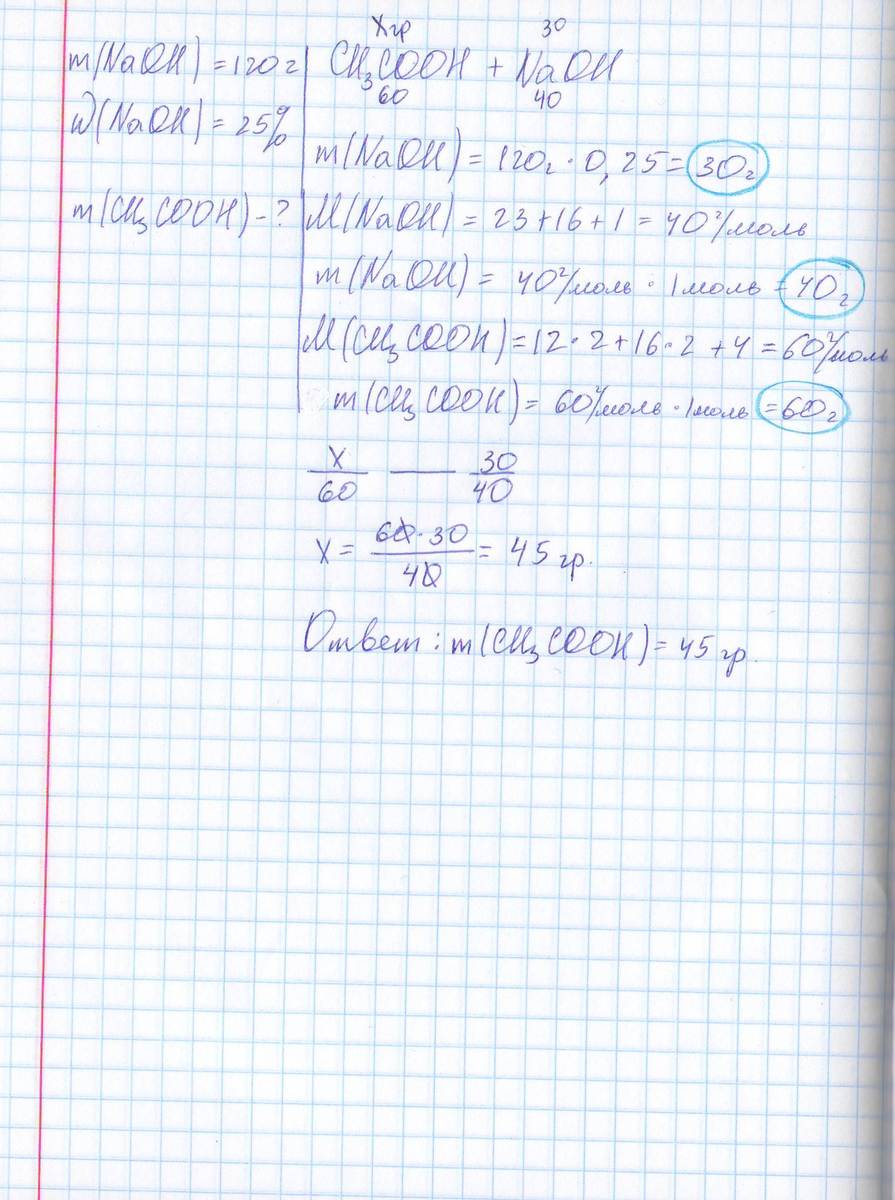 m(NaOH) = 120 г
ω(NaOH) = 25%
m(CH₃COOH) - ?
X гр 30
CH₃COOH + NaOH
60 40
m(NaOH) = 120г · 0,25 = 30г
M(NaOH) = 23 + 16 + 1 = 40 г/моль
m(NaOH) = 40 г/моль · 1 моль = 40г
M(CH₃COOH) = 12 · 2 + 16 · 2 + 4 = 60 г/моль
m(CH₃COOH) = 60 г/моль · 1 моль = 60г
X/60 — 30/40
X = 60 · 30/40 = 45 гр.
Ответ: m(CH₃COOH) = 45 гр.